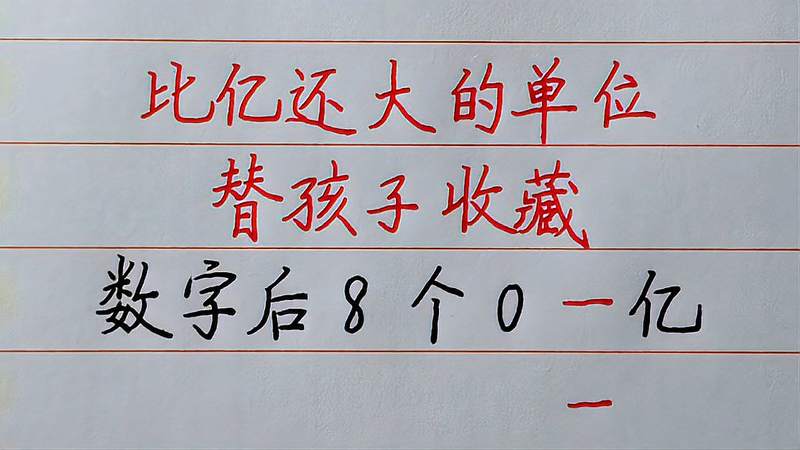 比亿还大的单位
替孩子收藏
数字后8个0一亿
一